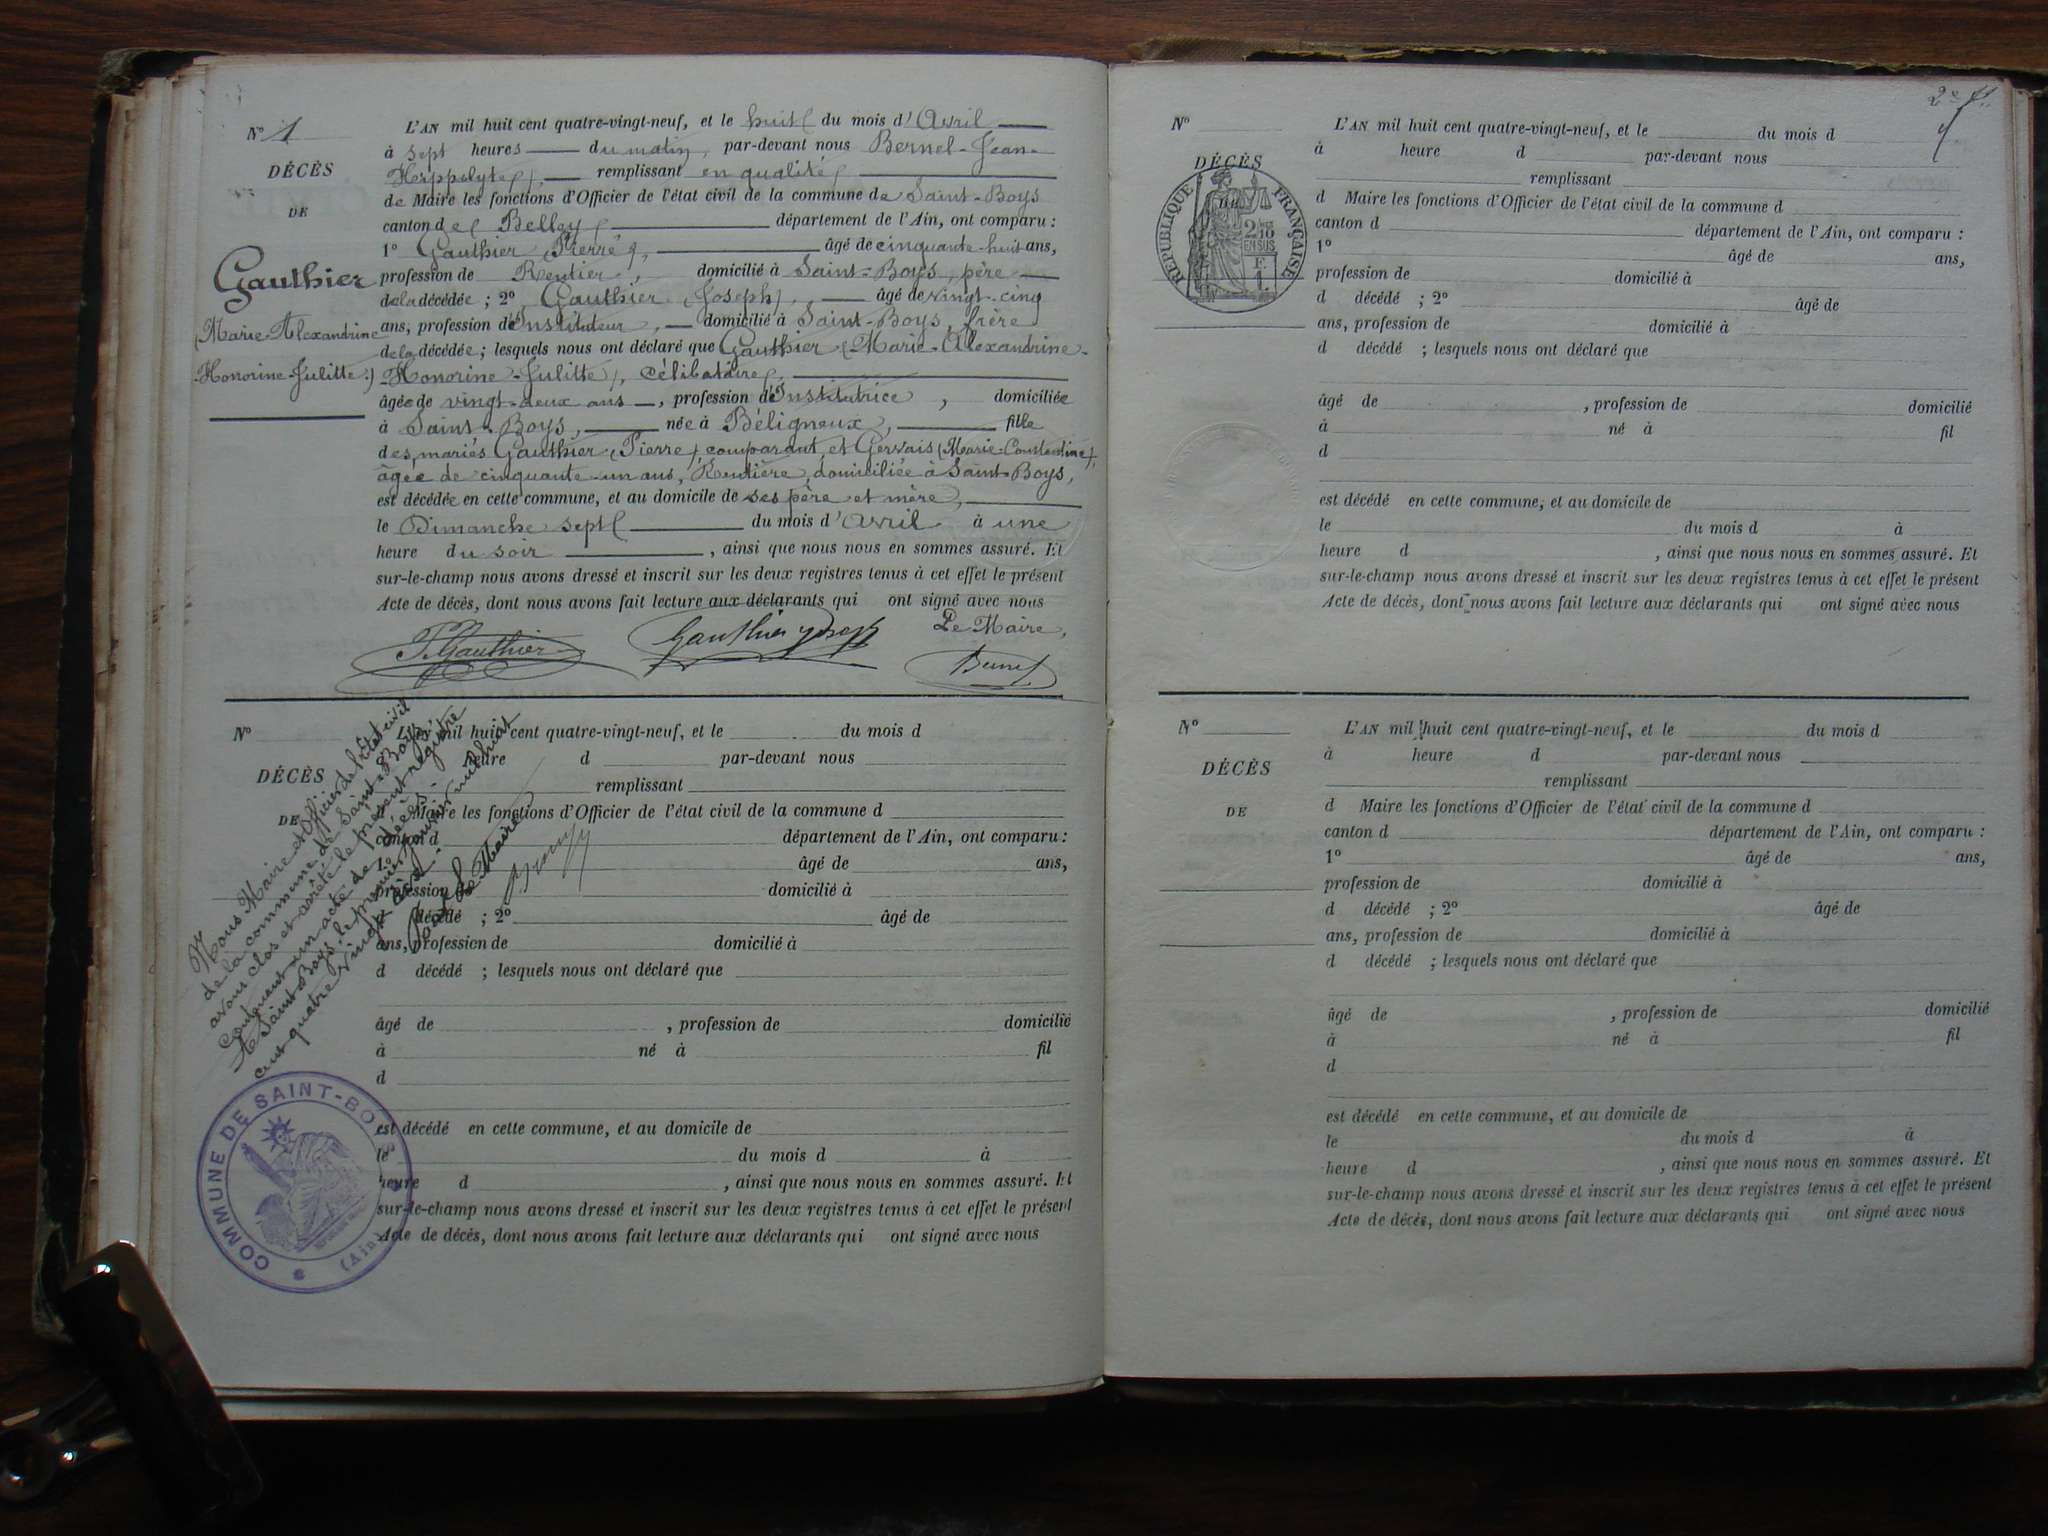 N° 1
DÉCÈS
DE
Gauthier
(Marie-Alexandrine
-Honorine-Julitte.)
L'AN mil huit cent quatre-vingt-neuf, et le huit du mois d'Avril
à sept heures du matin, par-devant nous Bernel-Jean-
remplissant en qualité
de Maire les fonctions d'Officier de l'état civil de la commune de Saint-Boys
canton de Belley département de l'Ain, ont comparu :
1° Gauthier (Pierre), âgé de cinquante-huit ans,
profession de Rentier, domicilié à Saint-Boys, père
de la décédée ; 2° Gauthier (Joseph), âgé de vingt-cinq
ans, profession d'Instituteur, domicilié à Saint-Boys, frère
de la décédée ; lesquels nous ont déclaré que Gauthier (Marie-Alexandrine-
-Honorine-Julitte), célibataire,
âgée de vingt-deux ans, profession d'Institutrice, domiciliée
à Saint-Boys, née à Béligneux, fille
des mariés Gauthier (Pierre) comparant, et Gervais (Marie-Constantine),
âgée de cinquante-un ans, Rentière, domiciliée à Saint-Boys,
est décédée en cette commune, et au domicile de ses père et mère,
le Dimanche sept du mois d'Avril à une
heure du soir, ainsi que nous nous en sommes assuré. Et
sur-le-champ nous avons dressé et inscrit sur les deux registres tenus à cet effet le présent
Acte de décès, dont nous avons fait lecture aux déclarants qui ont signé avec nous
Le Maire,
P. Gauthier Gauthier Joseph
N°
DÉCÈS
DE
L'AN mil huit cent quatre-vingt-neuf, et le du mois d
à heure d par-devant nous
remplissant
d Maire les fonctions d'Officier de l'état civil de la commune d
canton d département de l'Ain, ont comparu :
1° âgé de ans,
profession de domicilié à
d décédé ; 2° âgé de
ans, profession de domicilié à
d décédé ; lesquels nous ont déclaré que
âgé de , profession de domicilié
à né à fil
d
est décédé en cette commune, et au domicile de
le du mois d à
heure d , ainsi que nous nous en sommes assuré. Et
sur-le-champ nous avons dressé et inscrit sur les deux registres tenus à cet effet le présent
Acte de décès, dont nous avons fait lecture aux déclarants qui ont signé avec nous
Nous Maire et Officier de l'état civil
de la commune de Saint-Boys
avons clos et arrêté le présent registre
contenant un acte de décès.
A Saint-Boys, le premier janvier mil huit
cent quatre vingt dix.
Le Maire
COMMUNE DE SAINT-BOYS
(Ain)
2e f.
N°
DÉCÈS
DE
RÉPUBLIQUE FRANÇAISE
2/10
EN SUS
L'AN mil huit cent quatre-vingt-neuf, et le du mois d
à heure d par-devant nous
remplissant
d Maire les fonctions d'Officier de l'état civil de la commune d
canton d département de l'Ain, ont comparu :
1° âgé de ans,
profession de domicilié à
d décédé ; 2° âgé de
ans, profession de domicilié à
d décédé ; lesquels nous ont déclaré que
âgé de , profession de domicilié
à né à fil
d
est décédé en cette commune, et au domicile de
le du mois d à
heure d , ainsi que nous nous en sommes assuré. Et
sur-le-champ nous avons dressé et inscrit sur les deux registres tenus à cet effet le présent
Acte de décès, dont nous avons fait lecture aux déclarants qui ont signé avec nous
N°
DÉCÈS
DE
L'AN mil huit cent quatre-vingt-neuf, et le du mois d
à heure d par-devant nous
remplissant
d Maire les fonctions d'Officier de l'état civil de la commune d
canton d département de l'Ain, ont comparu :
1° âgé de ans,
profession de domicilié à
d décédé ; 2° âgé de
ans, profession de domicilié à
d décédé ; lesquels nous ont déclaré que
âgé de , profession de domicilié
à né à fil
d
est décédé en cette commune, et au domicile de
le du mois d à
heure d , ainsi que nous nous en sommes assuré. Et
sur-le-champ nous avons dressé et inscrit sur les deux registres tenus à cet effet le présent
Acte de décès, dont nous avons fait lecture aux déclarants qui ont signé avec nous